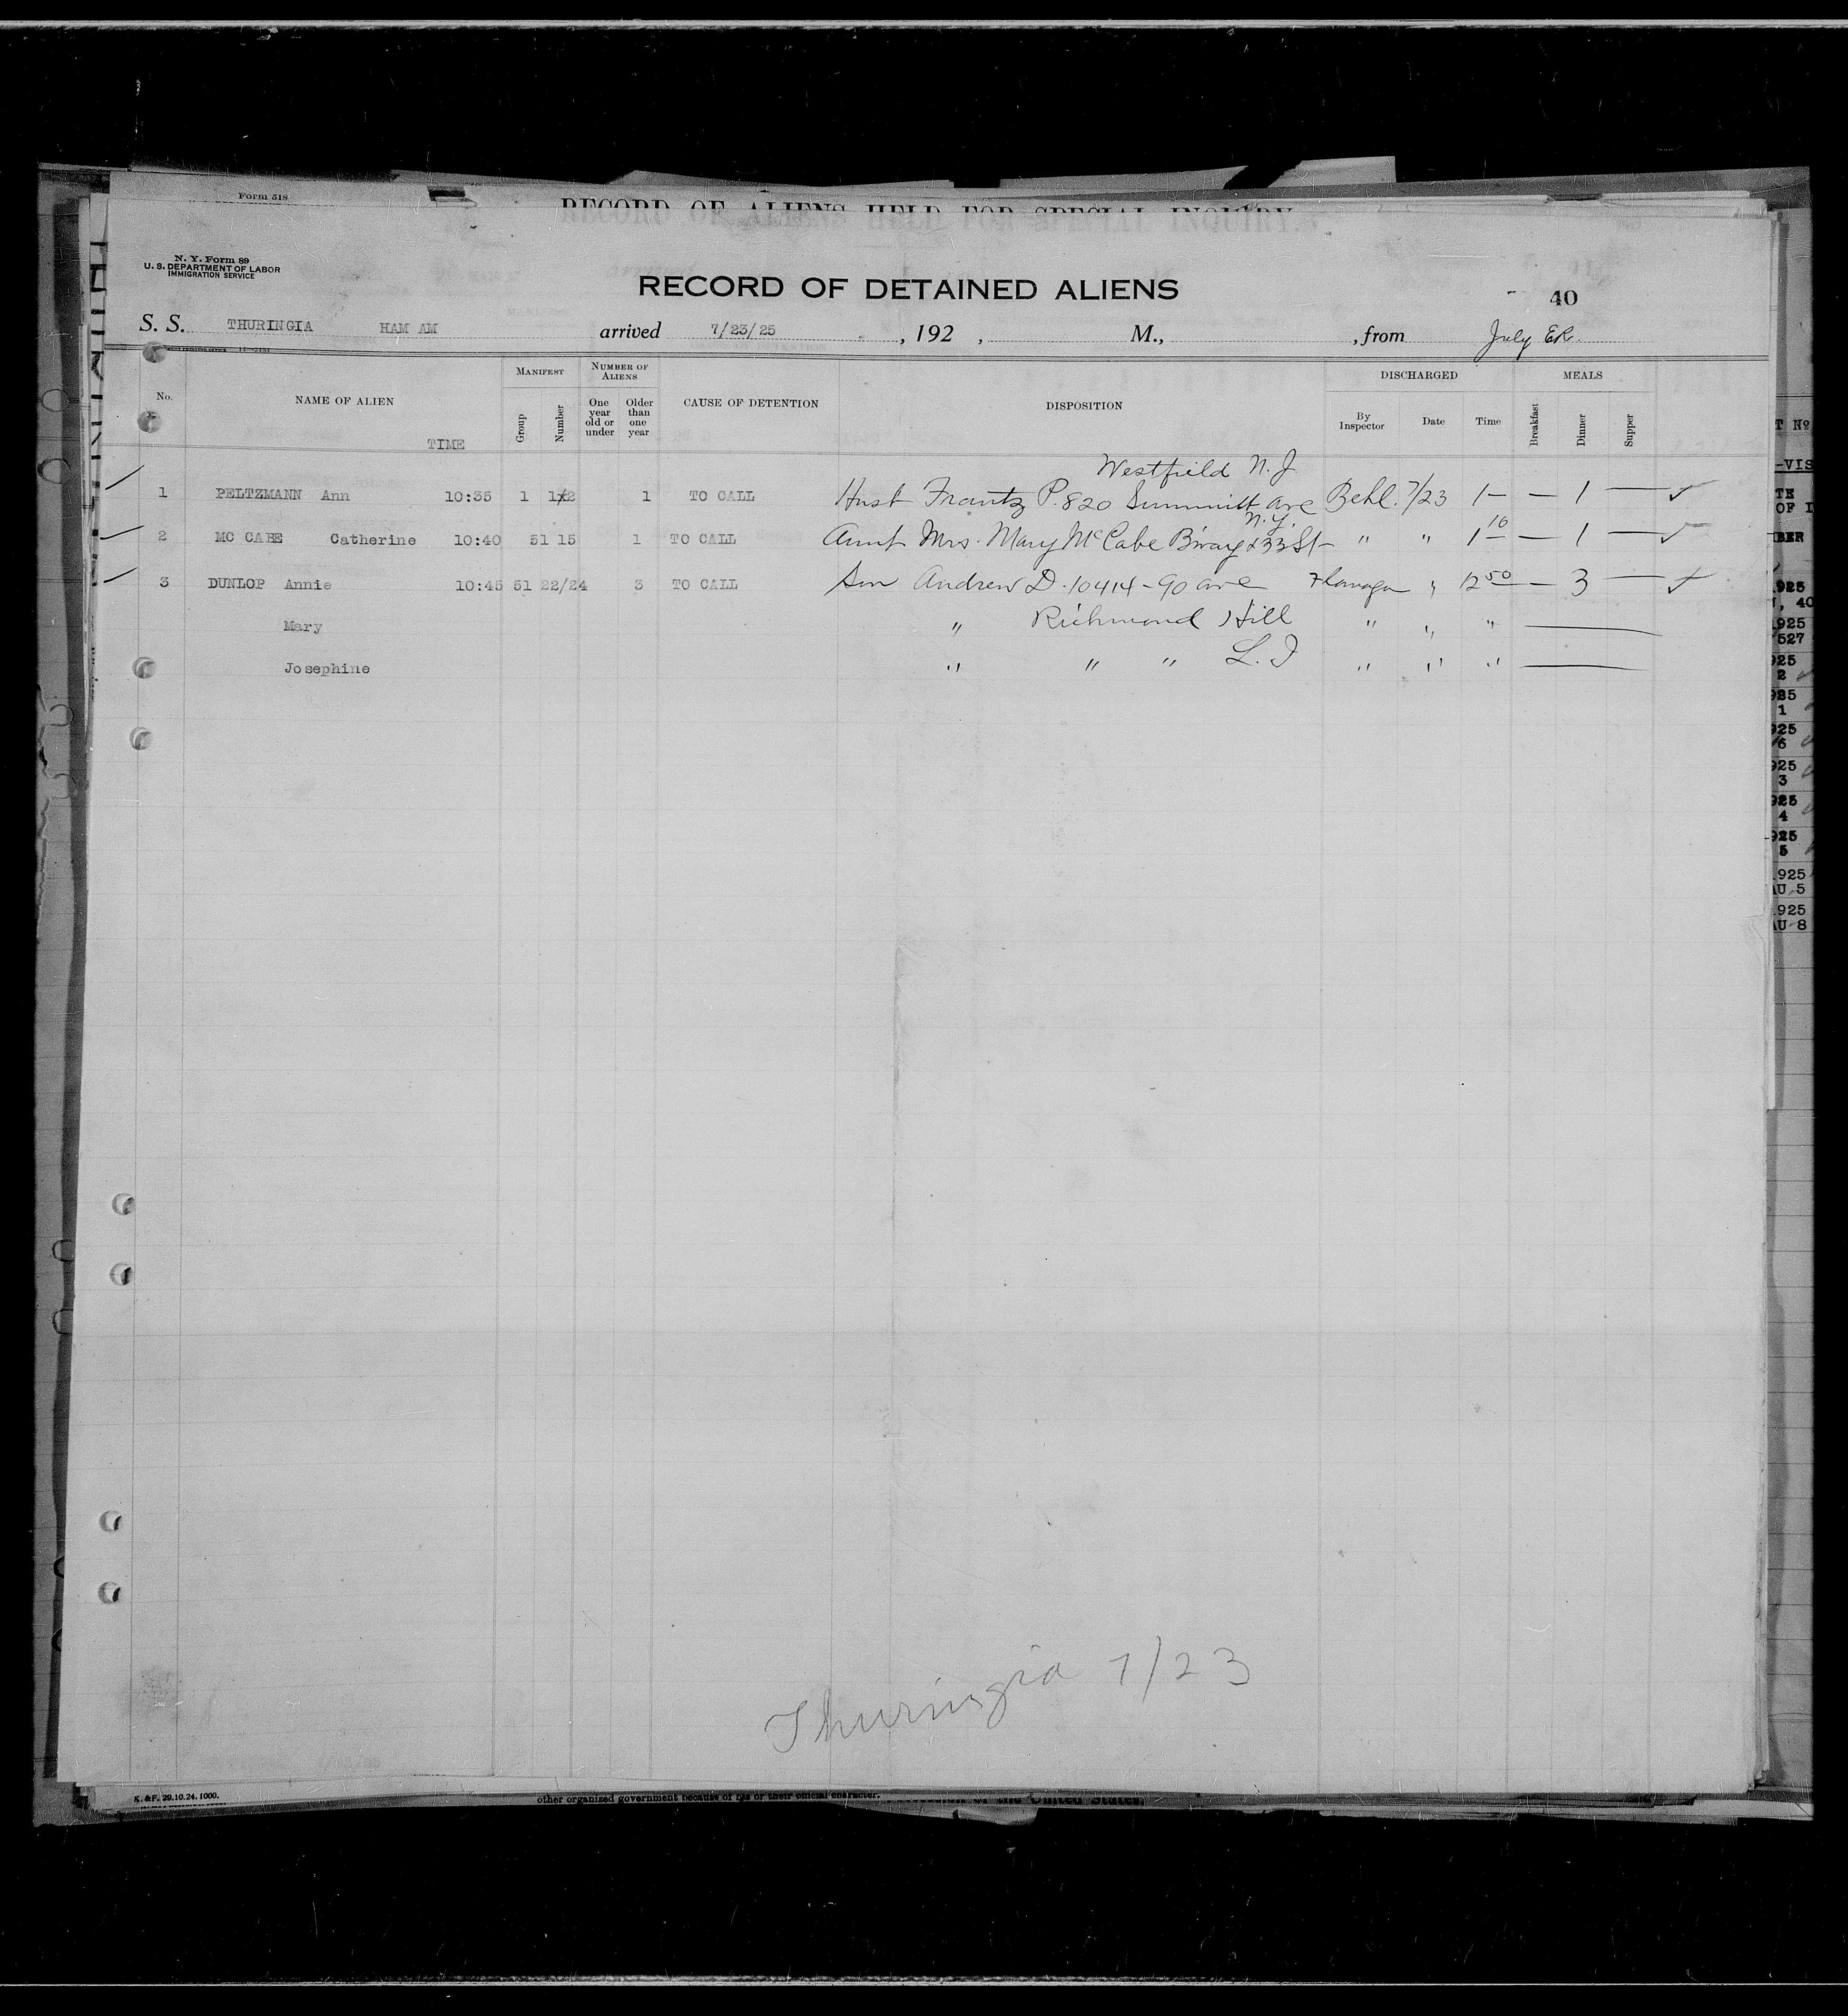 Form 518
RECORD OF ALIENS HELD FOR SPECIAL INQUIRY
N. Y. Form 89
U. S. DEPARTMENT OF LABOR
IMMIGRATION SERVICE
RECORD OF DETAINED ALIENS
40
S. S. THURINGIA HAM AM arrived 7/23/25, 192 , M., , from July ER.
No. NAME OF ALIEN TIME MANIFEST Group Number NUMBER OF ALIENS One year old or under Older than one year CAUSE OF DETENTION DISPOSITION DISCHARGED By Inspector Date Time MEALS Breakfast Dinner Supper
Westfield N.J
1 PELTZMANN Ann 10:35 1 1x2 1 TO CALL Husb Frantz P. 820 Summitt ave Behl. 7/23 1— — 1 — ✓
N.Y.
2 MC CABE Catherine 10:40 51 15 1 TO CALL Aunt Mrs. Mary McCabe B'way & 33 St — " " 1 10 — 1 — ✓
3 DUNLOP Annie 10:45 51 22/24 3 TO CALL Son Andrew D. 10414 - 90 ave Flanagan " 12 50 — 3 — ✓
Mary " Richmond Hill " " " —
Josephine " " " L. I " " " —
Thuringia 7/23
K. & F. 29.10.24.1000.
other organized government because of his or their official character.
of the United States.
T No
-VIS
OF I
BER
925
, 40
925
527
925
2
925
1
925
6
925
3
925
4
925
5
1925
AU 5
1925
AU 8